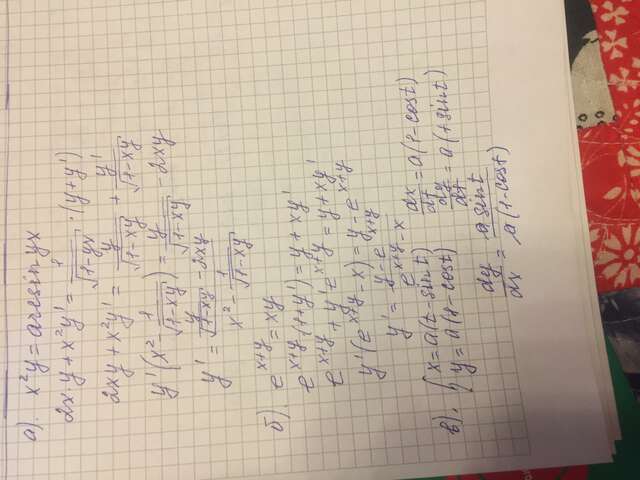 а). x²y = arcsin yx
2xy + x²y' = 1/√(1-yx) · (y+y')
2xy + x²y' = y/√(1-xy) + y'/√(1-xy)
y'(x² - 1/√(1-xy)) = y/√(1-xy) - 2xy
y' = (y/√(1-xy) - 2xy)/(x² - 1/√(1-xy))
б). e^(x+y) = xy
e^(x+y) (1+y') = y + xy'
e^(x+y) + y'e^(x+y) = y + xy'
y'(e^(x+y) - x) = y - e^(x+y)
y' = (y - e^(x+y))/(e^(x+y) - x)
в). { x = a(t - sint) dx/dt = a(1 - cost)
y = a(1 - cost) dy/dt = a(+sint)
dy/dx = a sint/a(1 - cost)